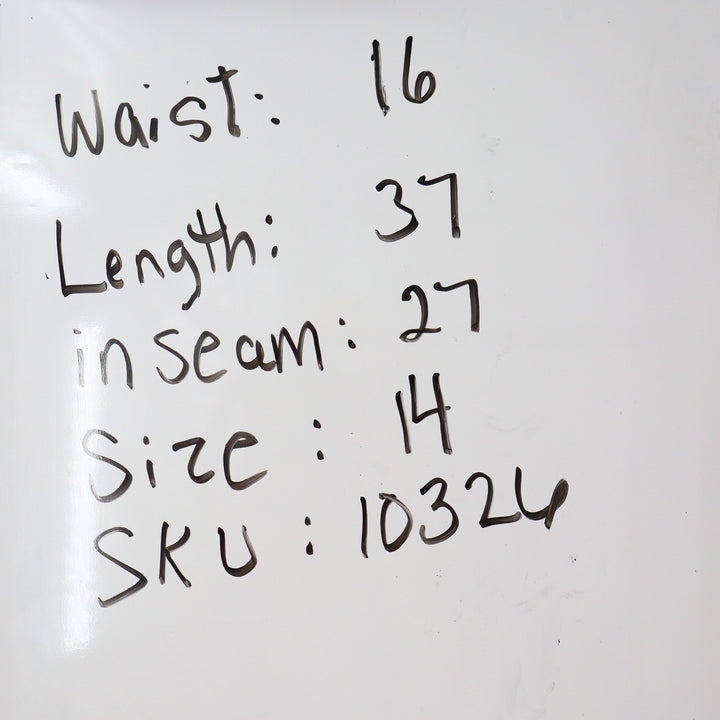 Waist: 16
Length: 37
inseam: 27
Size: 14
SKU: 10326